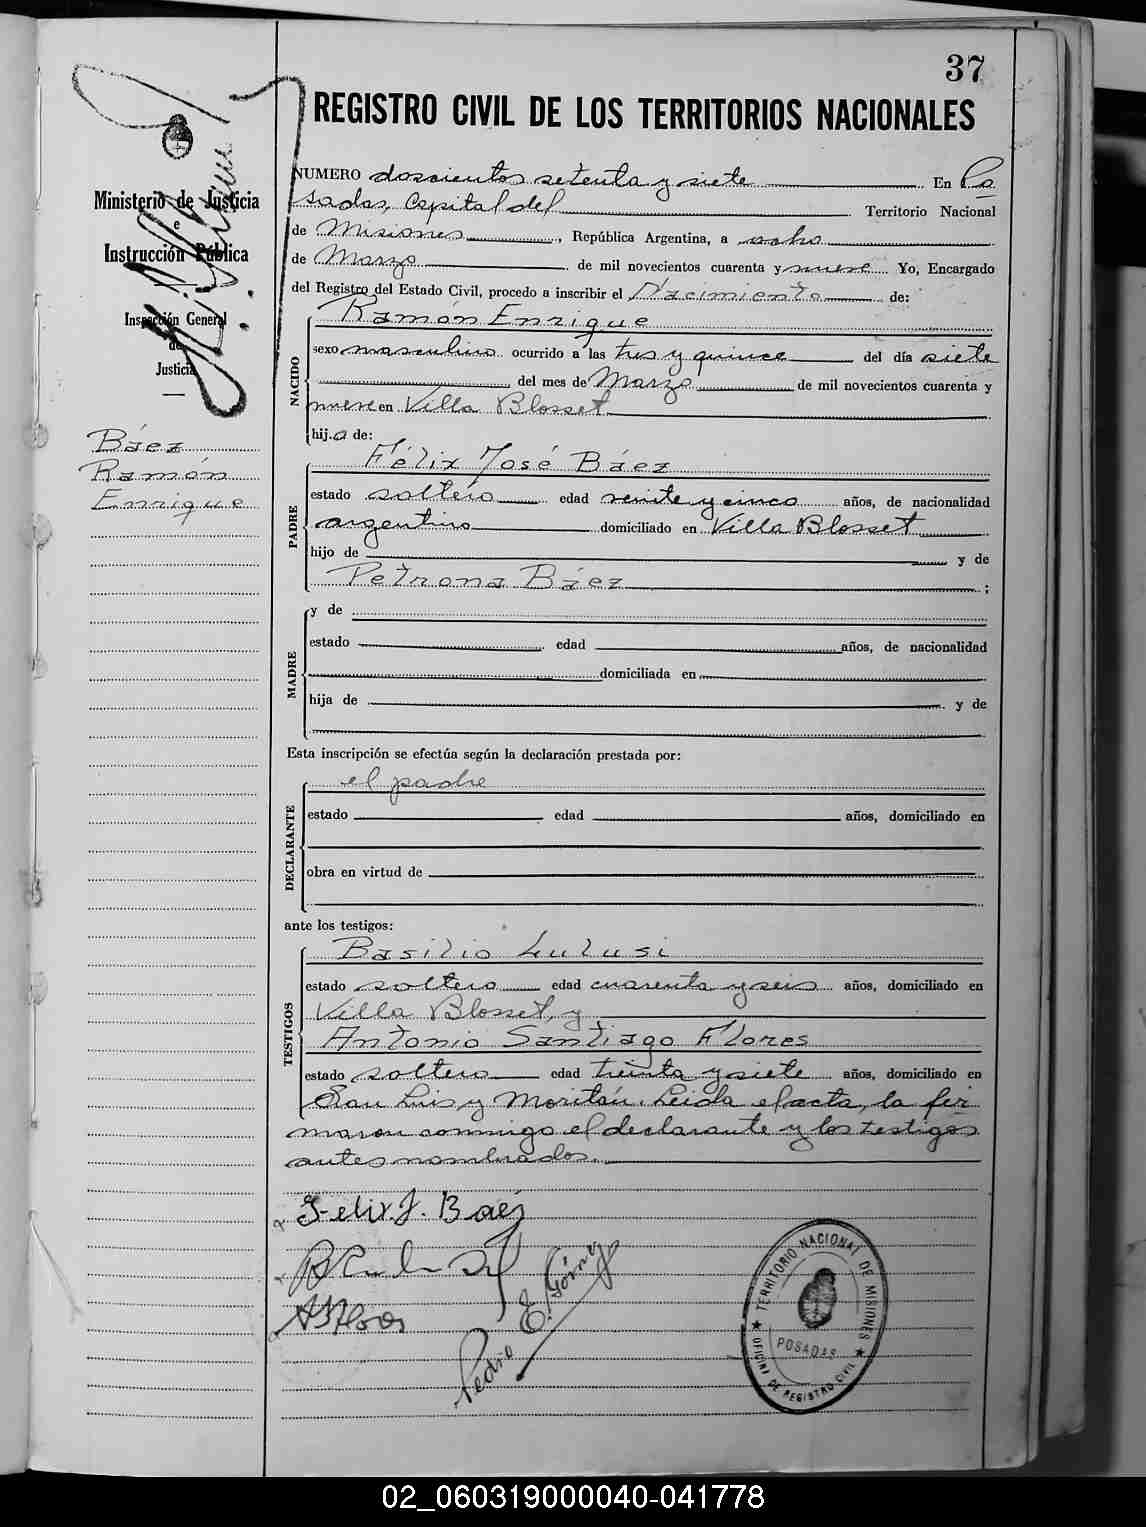 37
REGISTRO CIVIL DE LOS TERRITORIOS NACIONALES
Ministerio de Justicia
e
Instrucción Pública
Inspección General
de
Justicia
Báez
Ramón
Enrique
NUMERO doscientos setenta y siete En Po
sadas, Capital del Territorio Nacional
de Misiones, República Argentina, a ocho
de Marzo de mil novecientos cuarenta y nueve Yo, Encargado
del Registro del Estado Civil, procedo a inscribir el Nacimiento de:
NACIDO
Ramón Enrique
sexo masculino ocurrido a las tres y quince del día siete
del mes de Marzo de mil novecientos cuarenta y
nueve en Villa Blosset
hij.o de:
PADRE
Félix José Báez
estado soltero edad veinte y cinco años, de nacionalidad
argentino domiciliado en Villa Blosset
hijo de y de
Petrona Báez ;
MADRE
y de
estado edad años, de nacionalidad
domiciliada en
hija de y de
Esta inscripción se efectúa según la declaración prestada por:
DECLARANTE
el padre
estado edad años, domiciliado en
obra en virtud de
ante los testigos:
TESTIGOS
Basilio Lulusi
estado soltero edad cuarenta y seis años, domiciliado en
Villa Blosset, y
Antonio Santiago Flores
estado soltero edad treinta y siete años, domiciliado en
San Luis y Moritán. Leída el acta, la fir
maron conmigo el declarante y los testigos
antes nombrados.
Felix. J. Báez
Pedro E. Górny
TERRITORIO NACIONAL DE MISIONES
POSADAS
OFICINA DE REGISTRO CIVIL
02_060319000040-041778